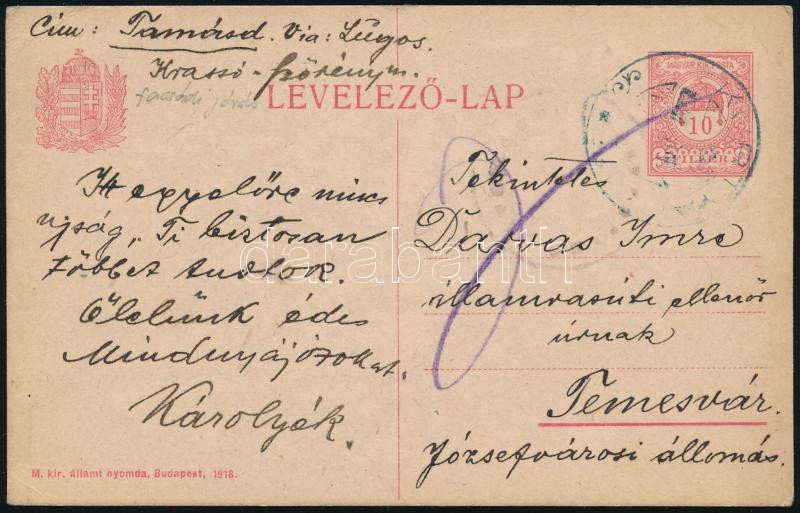 Cím: Tamásd. Via: Lugos.
Krassó-Szörénym.
facsádi járás
LEVELEZŐ-LAP
MAGYAR KIR. POSTA
10
FILLÉR
Itt egyelőre nincs
ujság, Ti biztosan
többet tudtok.
Ölelünk édes
Mindnyájózokat.
Károlyék.
Tekintetes
Darvas Imre
államvasúti ellenőr
úrnak
Temesvár.
Józsefvárosi állomás.
M. kir. állami nyomda. Budapest, 1918.
darabanth